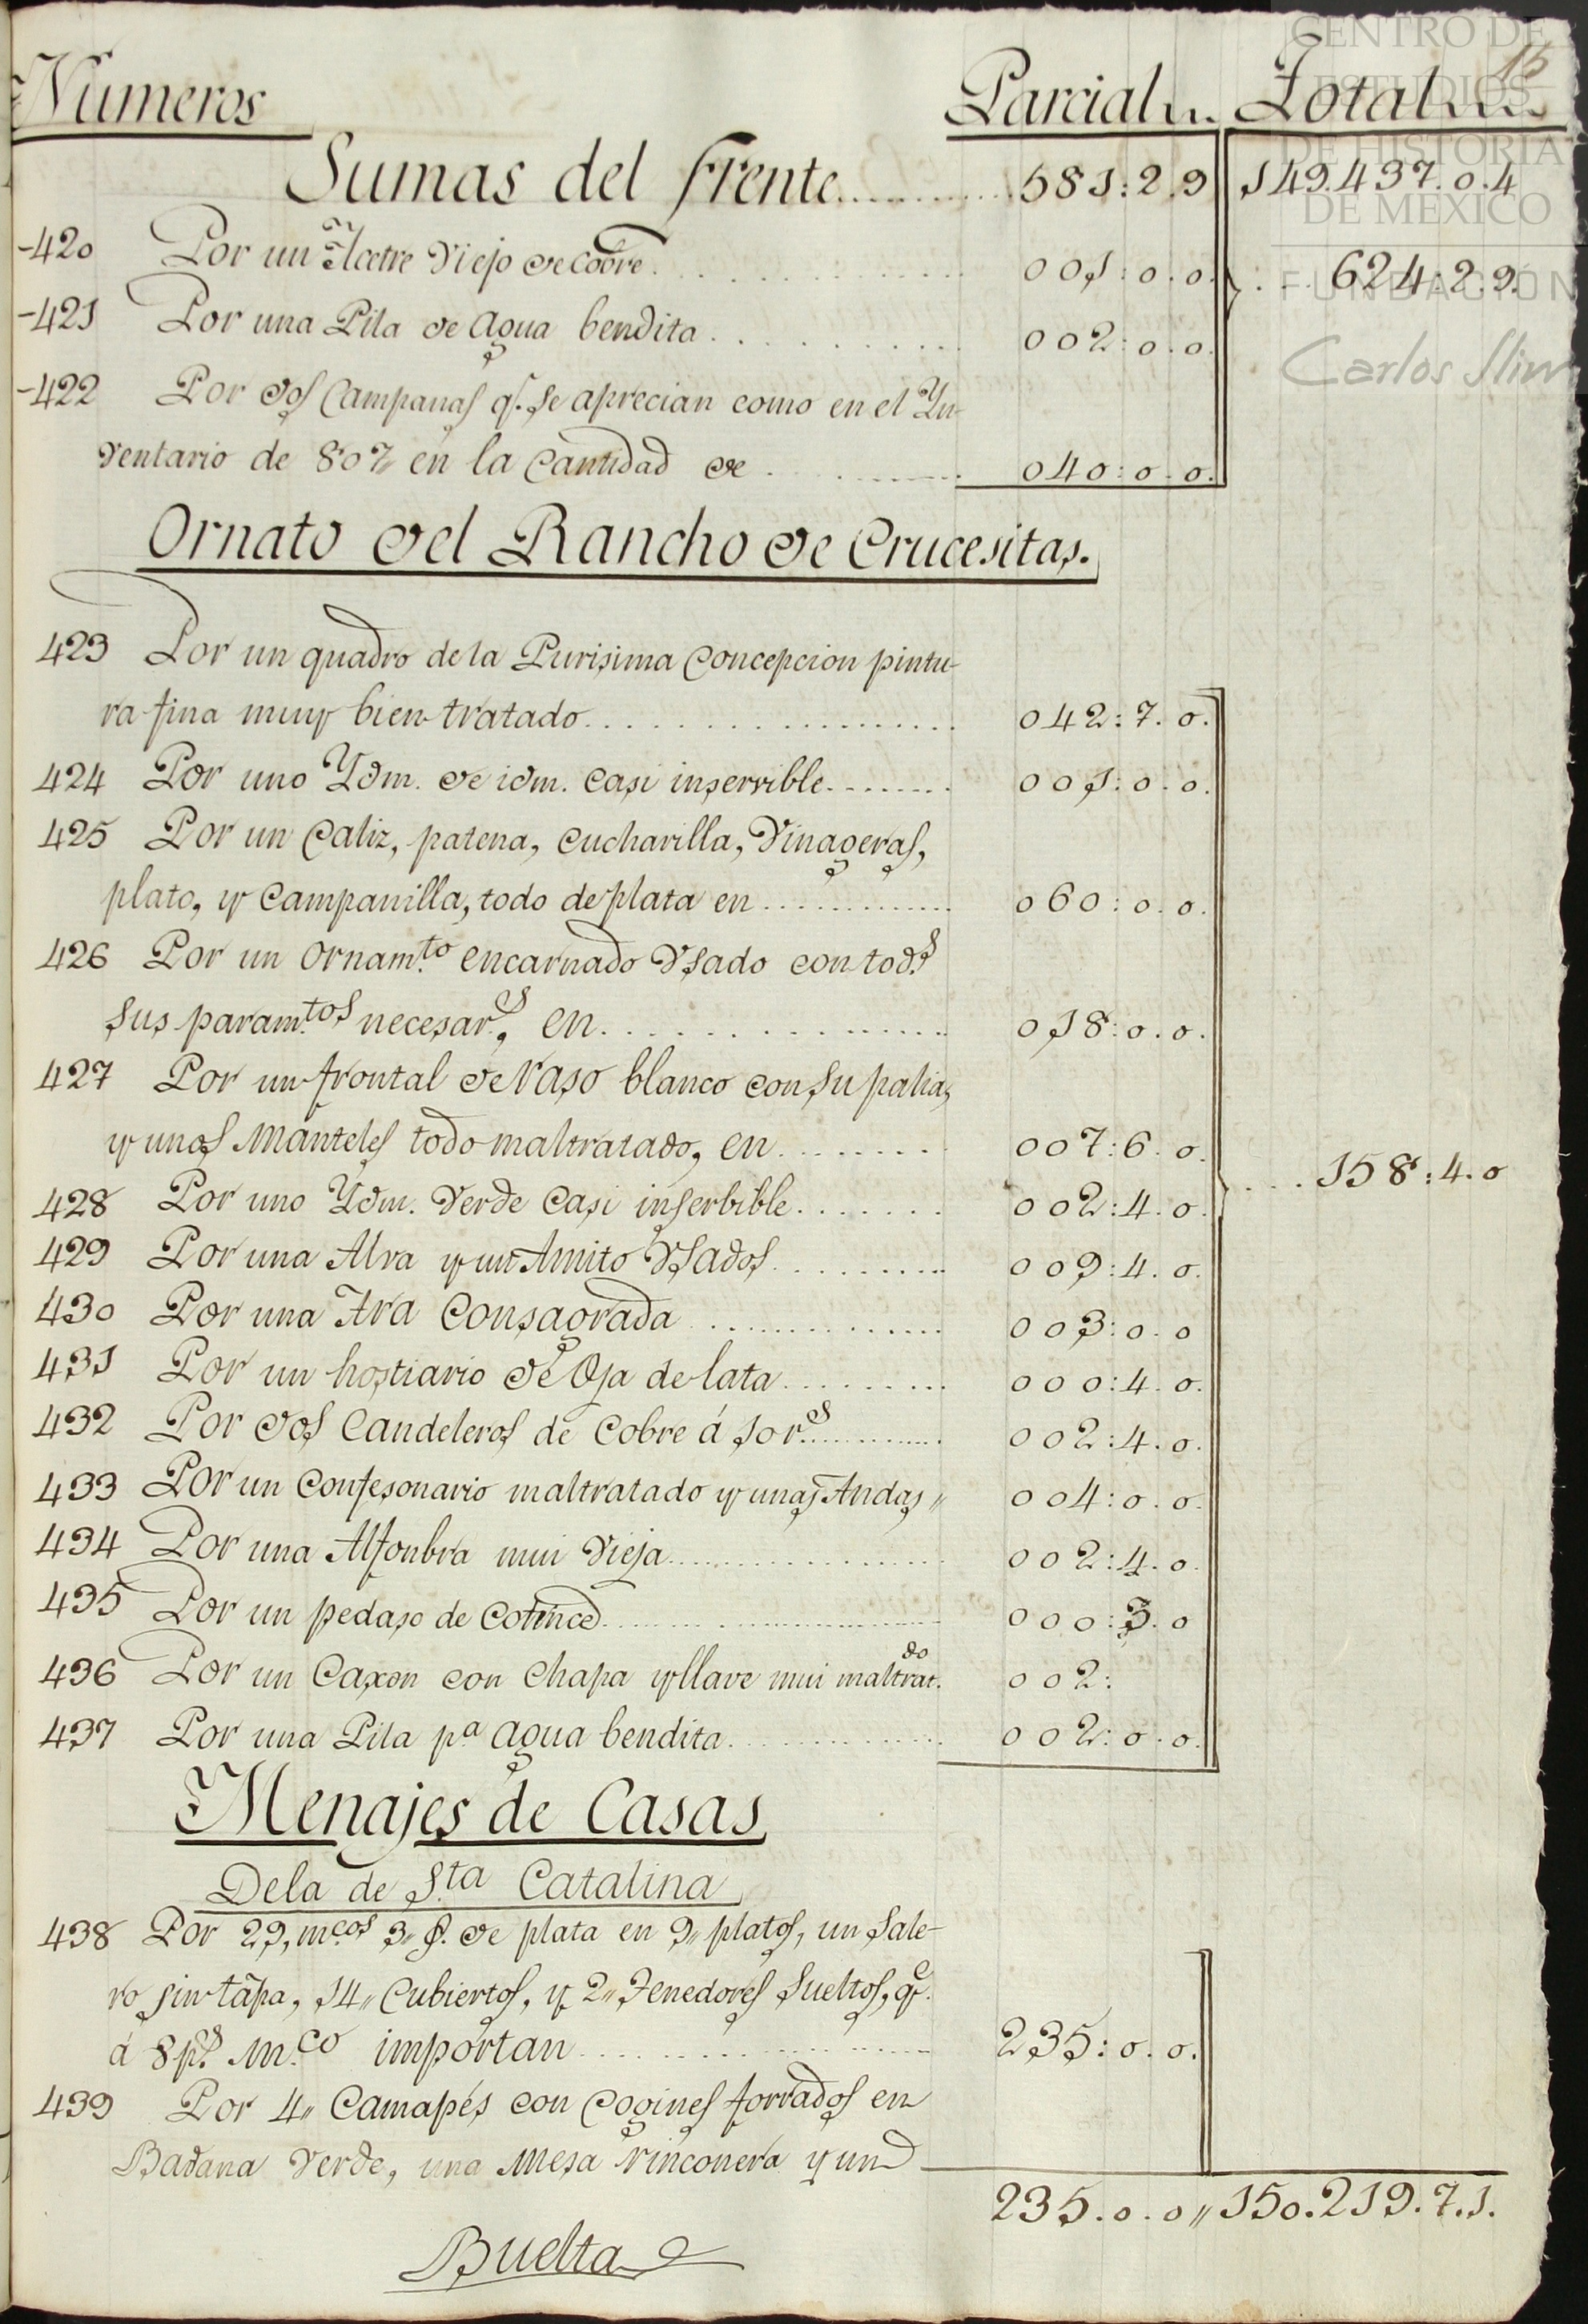 CENTRO DE
ESTUDIOS
DE HISTORIA
DE MEXICO
FUNDACIÓN
Carlos Slim
15
Números Parciales. Totales.
Sumas del frente.......... 581:2.9 149.437.0.4
420 Por un Acetre Viejo de cobre. 001:0.0. 624:2.9.
421 Por una Pila de agua bendita 002:0.0.
422 Por dos Campanas q.e se aprecian como en el Yn-
ventario de 807,, en la Cantidad de 040:0.0.
Ornato del Rancho de Crucesitas.
423 Por un quadro de la Purisima Concepcion pintu-
ra fina muy bien tratado. 042:7.0.
424 Por uno Ydm. de idm. casi inservible. 001:0.0.
425 Por un Caliz, patena, cucharilla, Vinageras,
plato, y Campanilla, todo de plata en 060:0.0.
426 Por un Ornam.to encarnado Vsado con tod.s
sus param.tos necesar.s, en. 018:0.0.
427 Por un frontal de raso blanco con su palia,
y unos Manteles todo maltratado, en. 007:6.0.
428 Por uno Ydm. Verde casi inserbible. 002:4.0. ...158:4.0
429 Por una Alva y un Amito Vsados. 009:4.0.
430 Por una Ara Consagrada 003:0.0
431 Por un hostiario de Oja de lata. 000:4.0.
432 Por dos Candeleros de Cobre á 10 r.s 002:4.0.
433 Por un Confesonario maltratado y unas Andas,, 004:0.0.
434 Por una Alfonbra mui Vieja. 002:4.0.
435 Por un pedaso de Cotence. 000:3.0
436 Por un Caxon con Chapa y llave mui maltrat.do 002:
437 Por una Pila p.a agua bendita. 002:0.0.
Menajes de Casas
Dela de S.ta Catalina
438 Por 29, m.cos 3,, de plata en 9,, platos, un Sale-
ro sin tapa, 14,, Cubiertos, y 2,, Tenedores Sueltos, q.e
á 8 p.s M.co importan 235:0.0.
439 Por 4,, Camapés con Cogines forrados en
Badana Verde, una Mesa rinconera y un
235.0.0,, 150.219.7.1.
Buelta